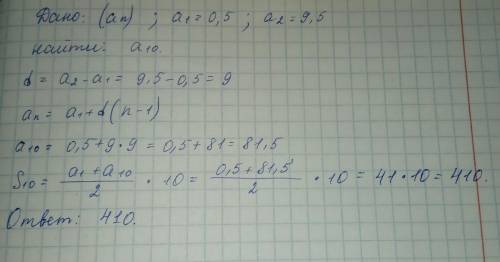 Дано: (an) ; a1 = 0,5 ; a2 = 9,5
найти: a10.
d = a2 - a1 = 9,5 - 0,5 = 9
an = a1 + d(n-1)
a10 = 0,5 + 9 * 9 = 0,5 + 81 = 81,5
S10 = (a1 + a10)/2 * 10 = (0,5 + 81,5)/2 * 10 = 41 * 10 = 410.
Ответ: 410.